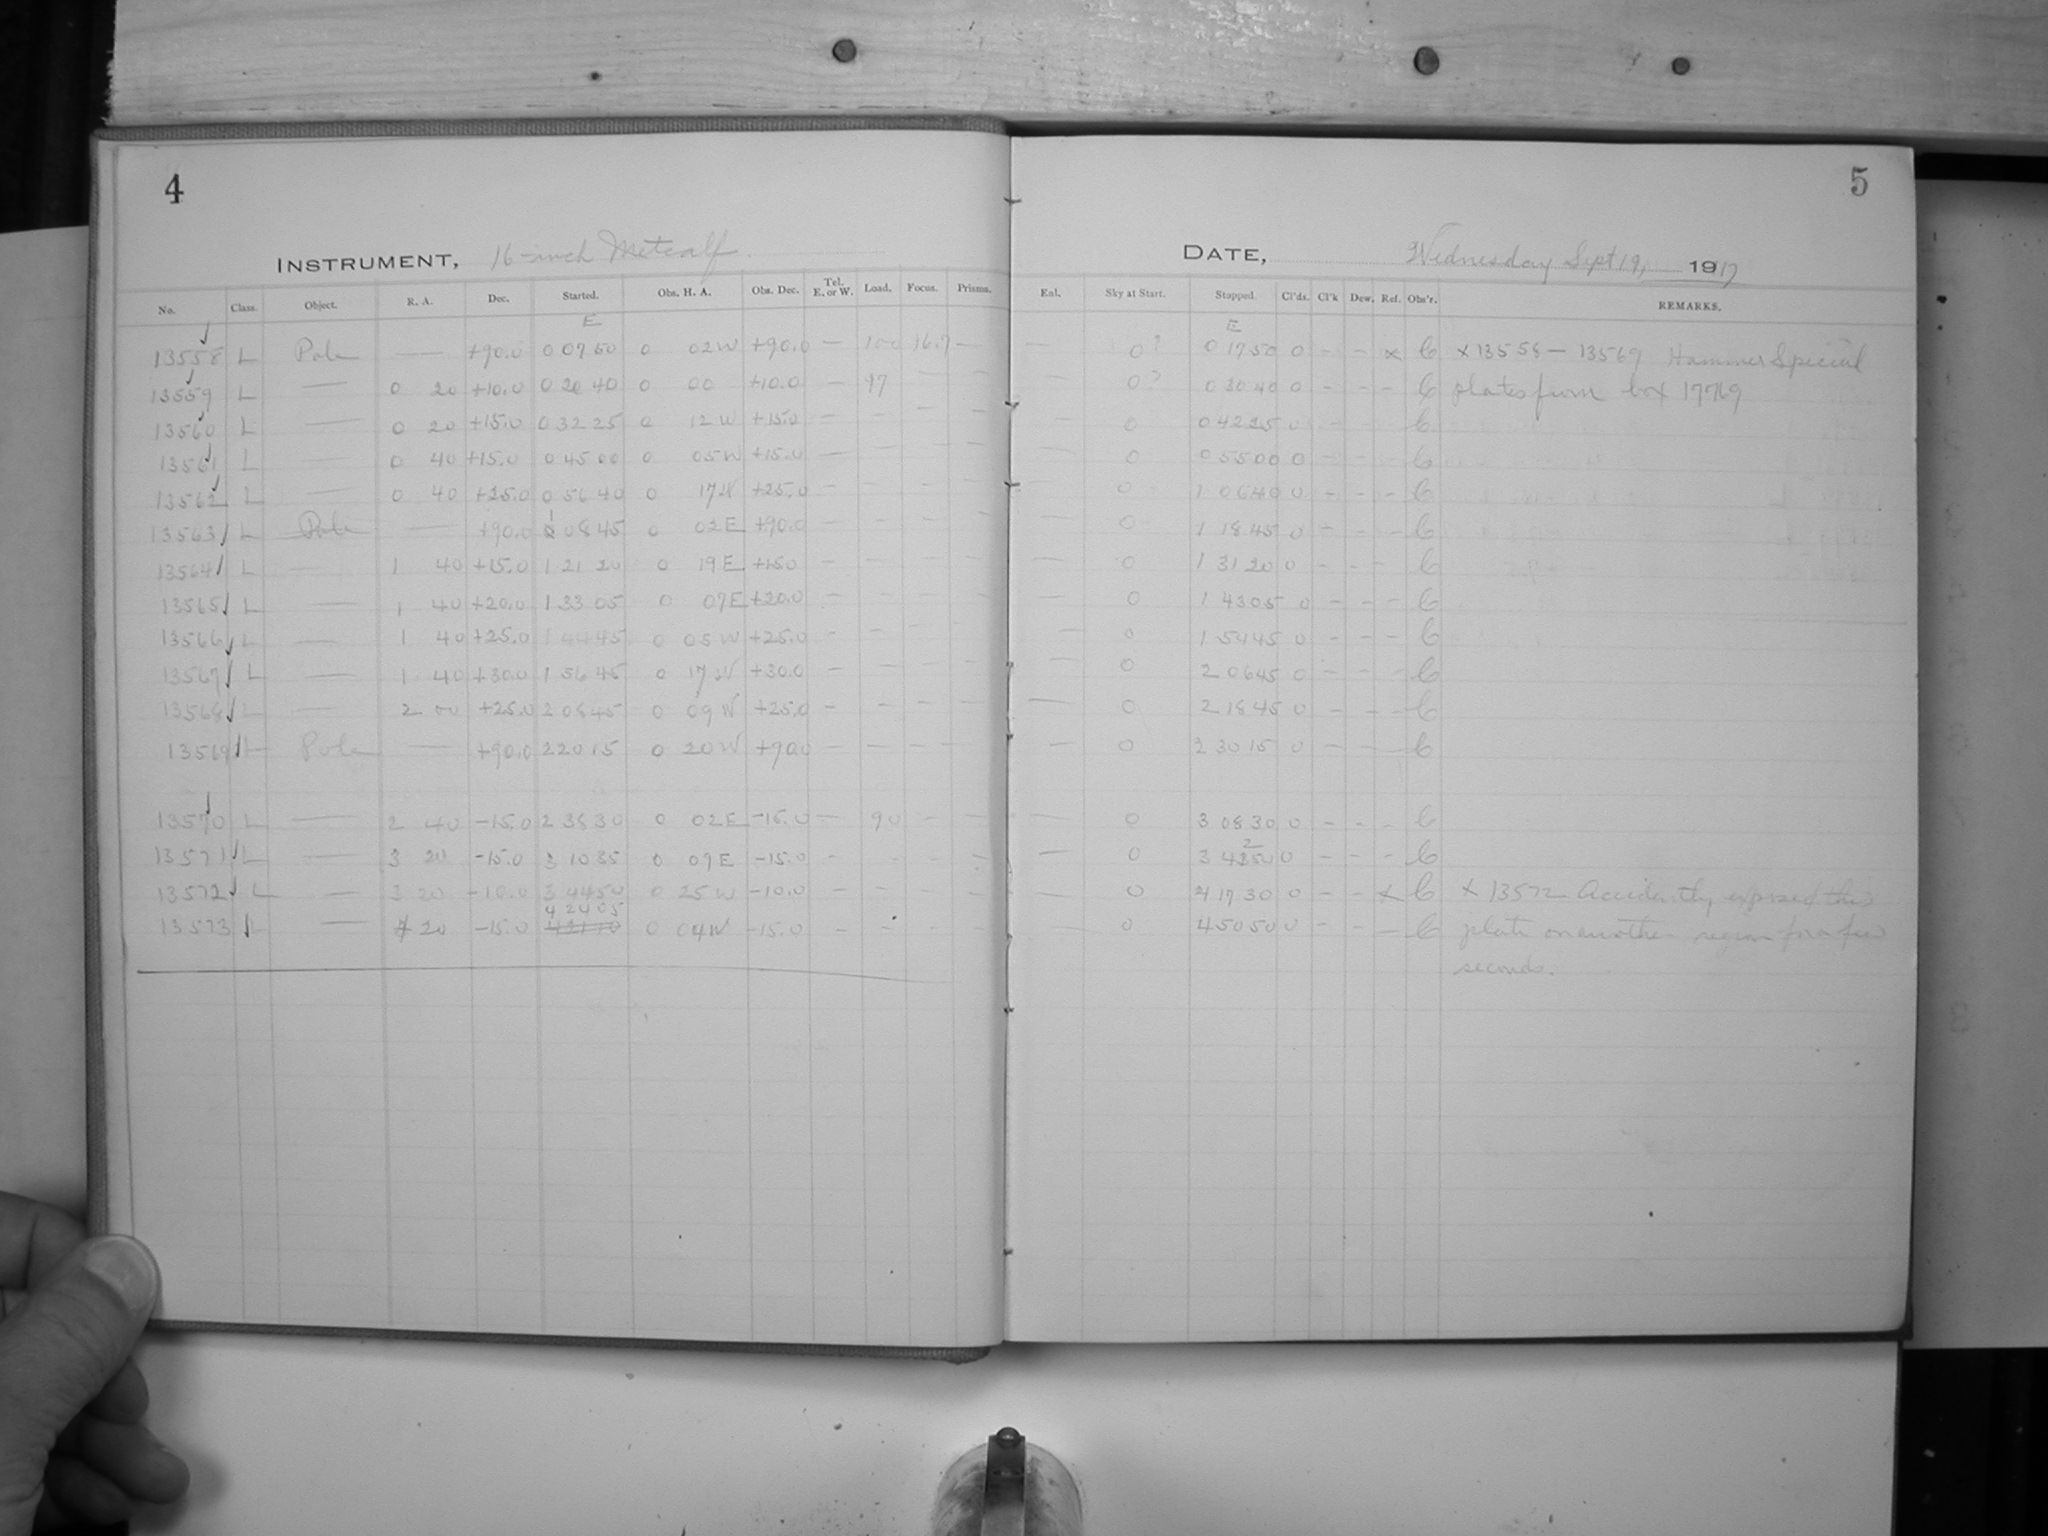 4
5
INSTRUMENT, 16-inch Metcalf
DATE, Wednesday Sept 19, 1917
No. Class. Object. R. A. Dec. Started. Obs. H. A. Obs. Dec. Tel. E. or W. Load. Focus. Prisms. Enl. Sky at Start. Stopped. Cl'ds. Cl'k Dew. Ref. Obs'r. REMARKS.
E E
13558 L Pole — +90.0 0 07 50 0 02 W +90.0 — 100 16.7 — — 0? 0 17 50 0 - - x C x 13558 — 13569 Hammer Special
13559 L — 0 20 +10.0 0 20 40 0 00 +10.0 — 97 — — — 0? 0 30 40 0 - - - C plates from box 17769
13560 L — 0 20 +15.0 0 32 25 0 12 W +15.0 — — — — — 0 0 42 25 0 - - - C
13561 L — 0 40 +15.0 0 45 00 0 05 W +15.0 — — — — — 0 0 55 00 0 - - - C
13562 L — 0 40 +25.0 0 56 40 0 17 W +25.0 — — — — — 0 1 06 40 0 - - - C
13563 L Pole — +90.0 1 08 45 0 02 E +90.0 - - - - — 0 1 18 45 0 - - - C
13564 L — 1 40 +15.0 1 21 20 0 19 E +15.0 - - - - — 0 1 31 20 0 - - - C
13565 L — 1 40 +20.0 1 33 05 0 07 E +20.0 - - - - — 0 1 43 05 0 - - - C
13566 L — 1 40 +25.0 1 44 45 0 05 W +25.0 - - - - — 0 1 54 45 0 - - - C
13567 L — 1 40 +30.0 1 56 45 0 17 W +30.0 - - - - — 0 2 06 45 0 - - - C
13568 L — 2 00 +25.0 2 08 45 0 09 W +25.0 - - - - — 0 2 18 45 0 - - - C
13569 L Pole — +90.0 2 20 15 0 20 W +90.0 - - - - — 0 2 30 15 0 - - - C
13570 L — 2 40 -15.0 2 38 30 0 02 E -15.0 — 90 - - — 0 3 08 30 0 - - - C
13571 L — 3 20 -15.0 3 10 35 0 09 E -15.0 - - - - — 0 3 42 50 0 - - - C
13572 L — 3 20 -10.0 3 44 50 0 25 W -10.0 - - - - — 0 4 17 30 0 - - x C x 13572 Accidently exposed this
13573 L — 4 20 -15.0 4 24 05 0 04 W -15.0 - - - - — 0 4 50 50 0 - - - C plate on another region for a few
seconds.